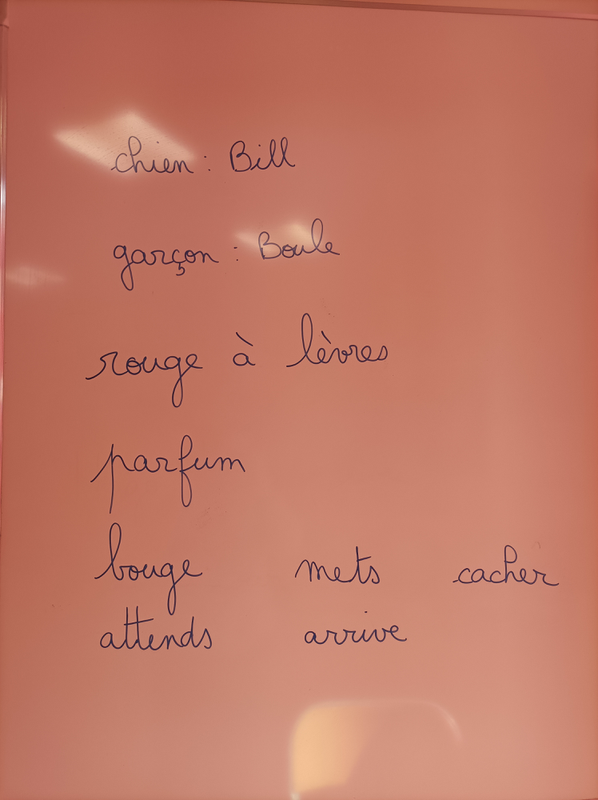 chien : Bill
garçon : Boule
rouge à lèvres
parfum
bouge mets cacher
attends arrive